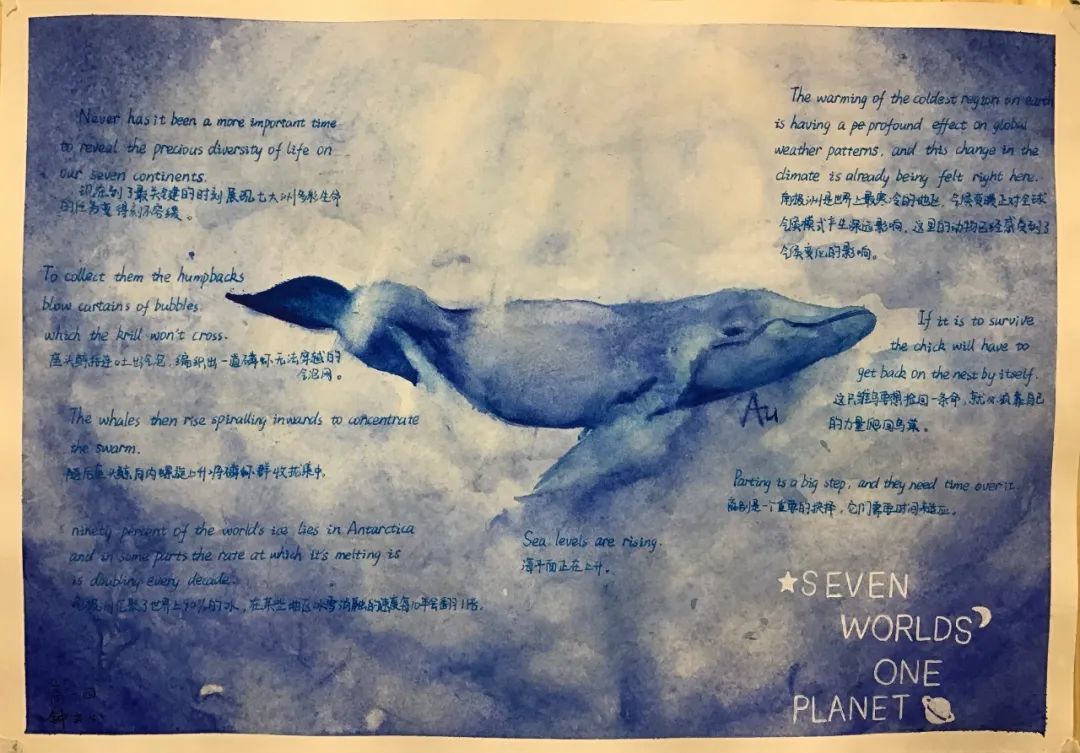 Never has it been a more important time
to reveal the precious diversity of life on
our seven continents.
现在到了最关键的时刻展现七大洲多彩生命
的任务变得刻不容缓。
To collect them the humpbacks
blow curtains of bubbles
which the krill won't cross.
座头鲸接连吐出气泡,编织出一道磷虾无法穿越的
气泡网。
The whales then rise spiralling inwards to concentrate
the swarm.
随后座头鲸向内螺旋上升将磷虾群收拢集中。
ninety percent of the world's ice lies in Antarctica
and in some parts the rate at which it's melting is
is doubling every decade.
南极洲汇聚了世界上90%的冰,在某些地区冰雪消融的速度每10年会翻1倍。
高一四
钟
The warming of the coldest region on earth
is having a pe profound effect on global
weather patterns, and this change in the
climate is already being felt right here.
南极洲是世界上最寒冷的地区,气候变暖正对全球
气候模式产生深远影响,这里的动物已经感受到了
气候变化的影响。
If it is to survive
the chick will have to
get back on the nest by itself.
这只雏鸟要想捡回一条命,就必须靠自己
的力量爬回鸟巢。
Au
Parting is a big step, and they need time over it.
离别是一个重要的抉择,它们需要时间适应。
Sea levels are rising.
海平面正在上升。
SEVEN
WORLDS
ONE
PLANET